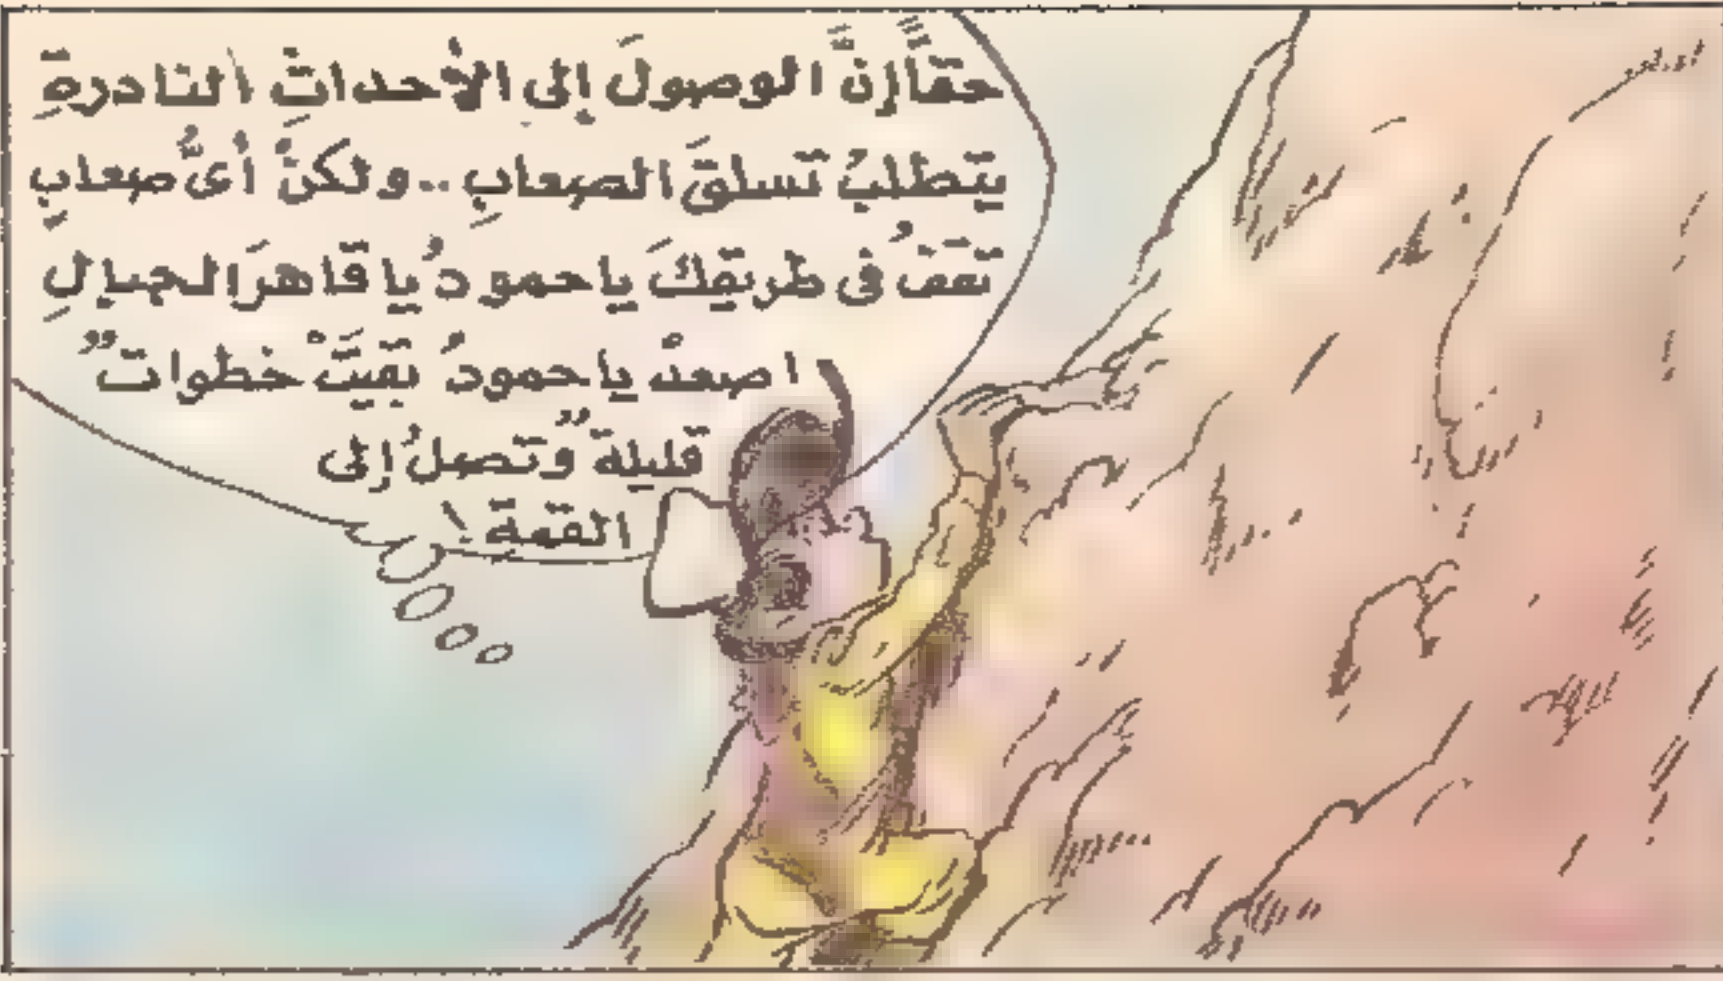 حقًّا إنَّ الوصولَ إلى الأحداثِ النادرةِ
يتطلبُ تسلقَ الصعابِ .. ولكنْ أىُّ صعابٍ
تقفُ فى طريقِكَ يا حمودُ يا قاهرَ الجبالِ
اصعدْ يا حمودُ بقيَتْ خطواتٌ
قليلةٌ وتصلُ إلى
القمة !